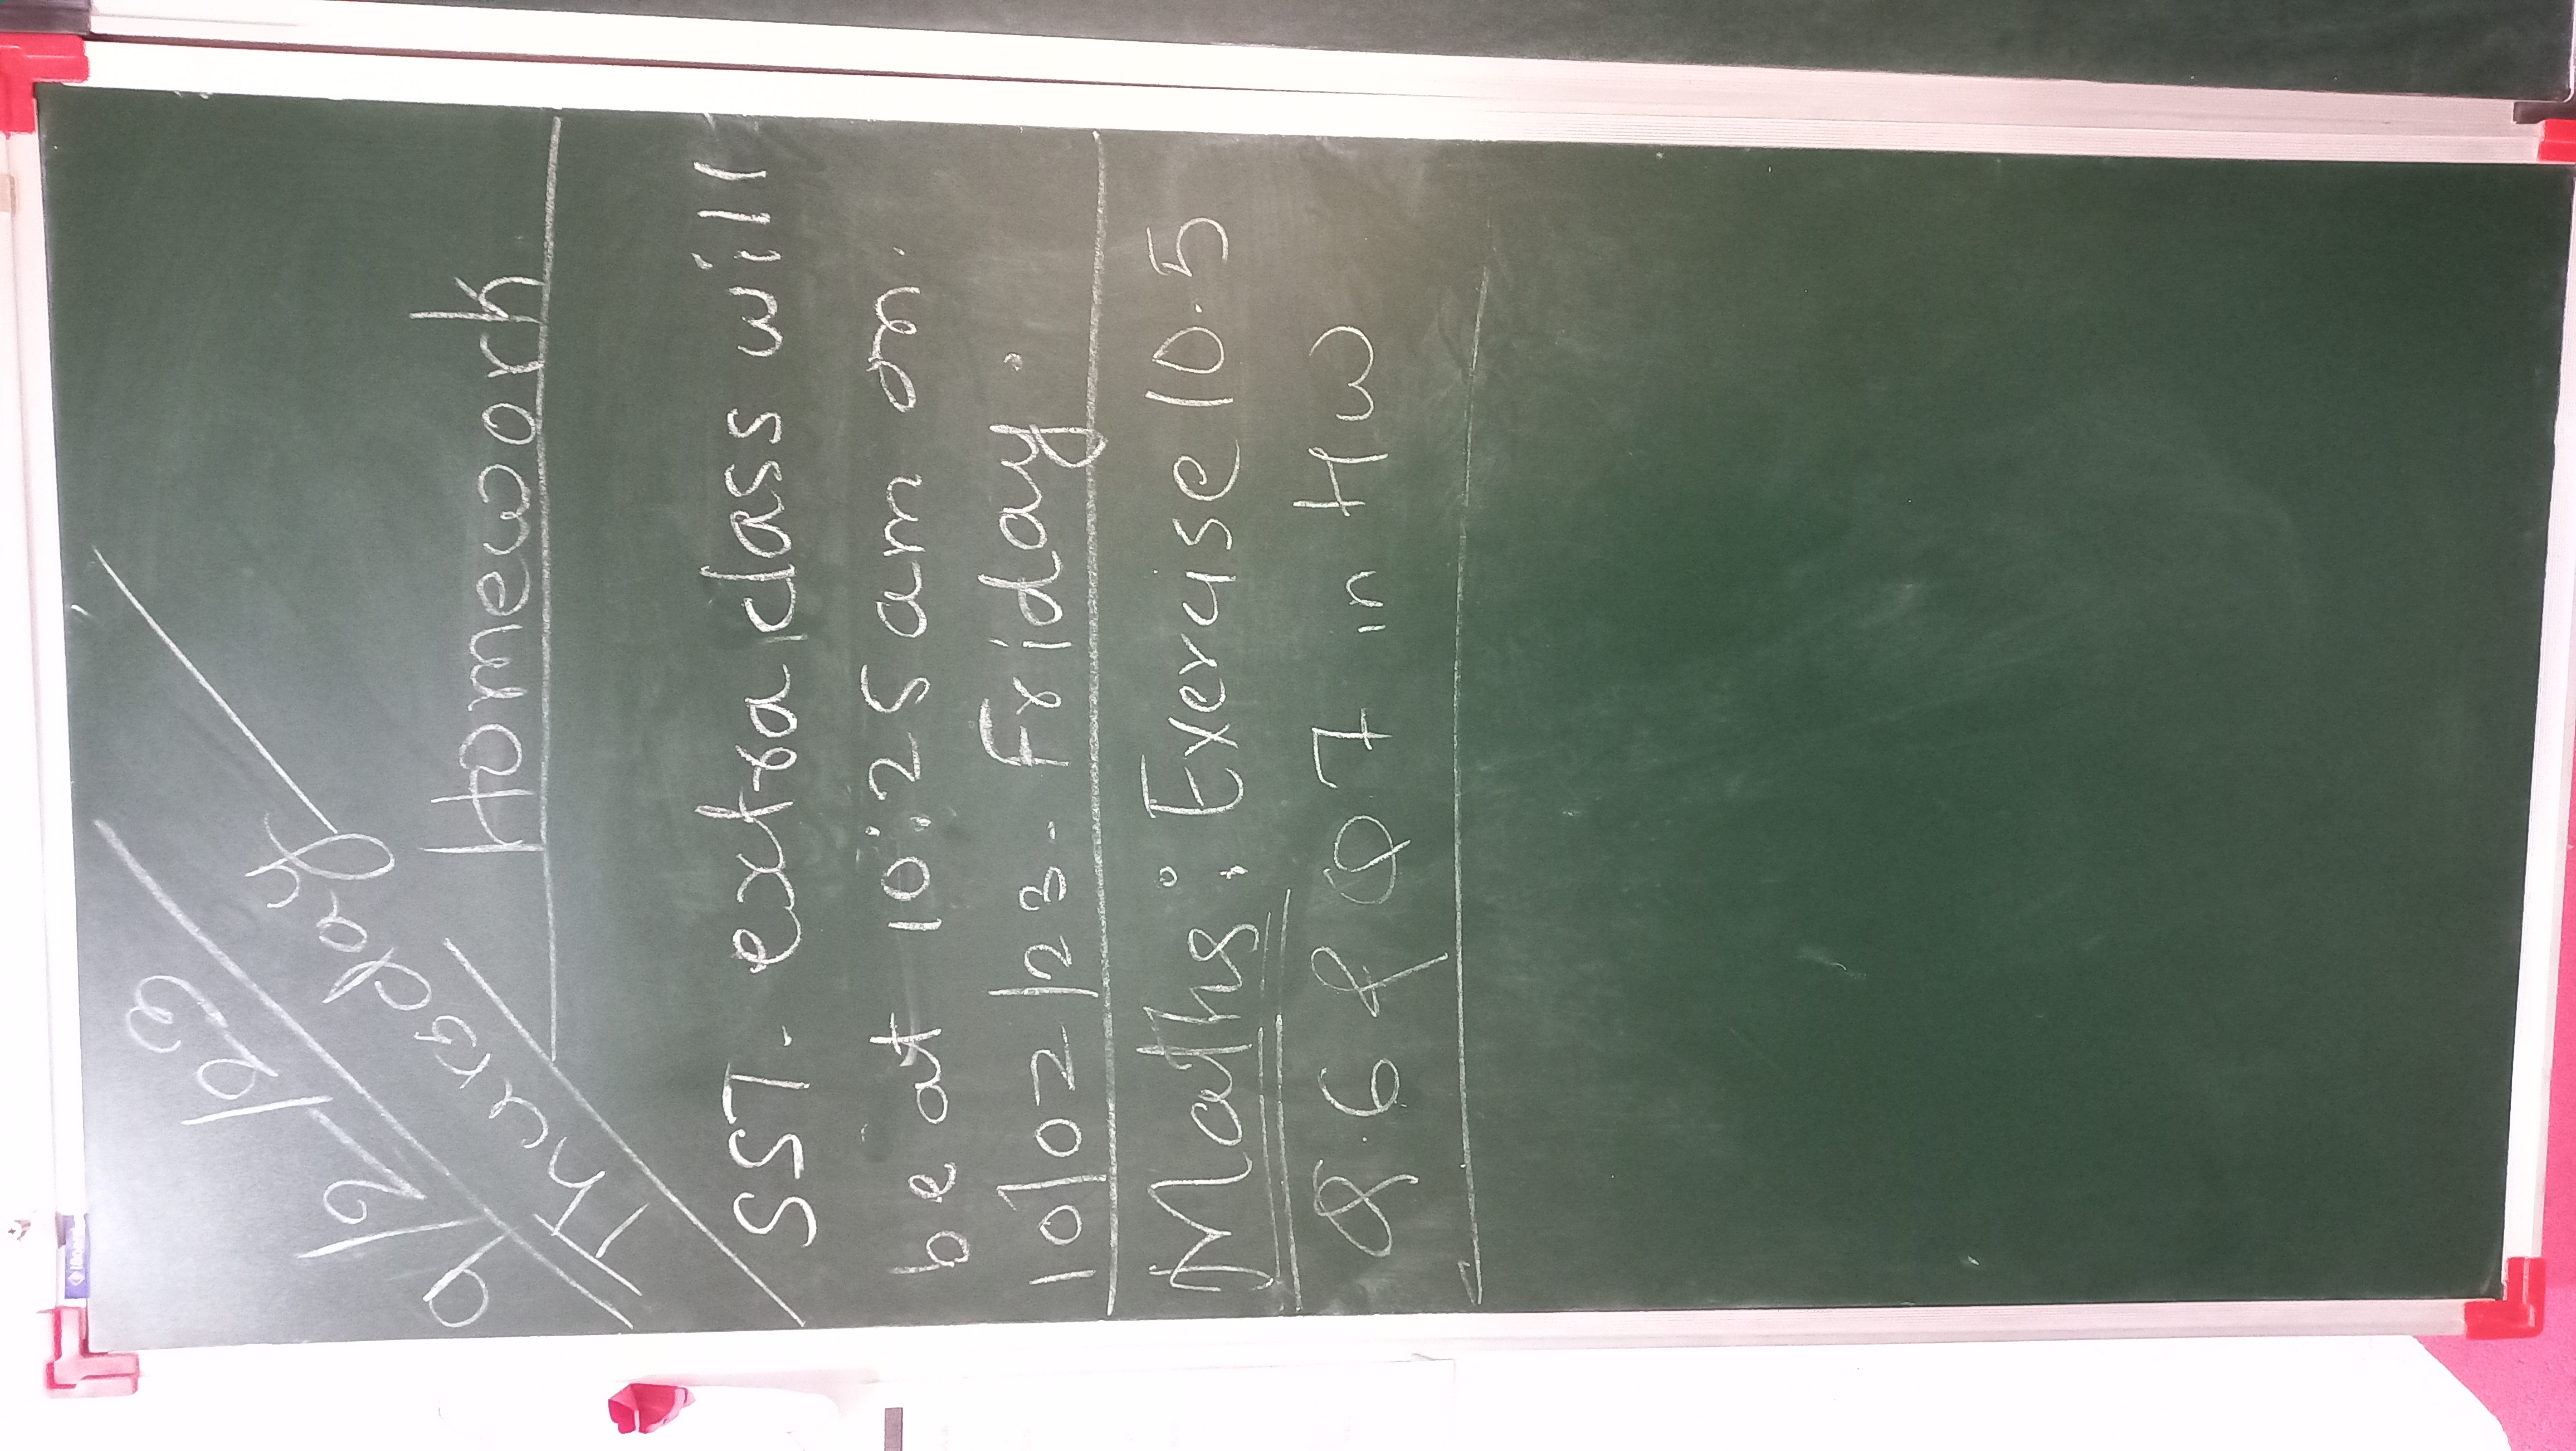 9/2/23
Thursday
Homework
SST. extra class will
be at 10:25 am on.
10/02/23. Friday.
Maths: Exercise 10.5
Q.6 & Q7 in HW